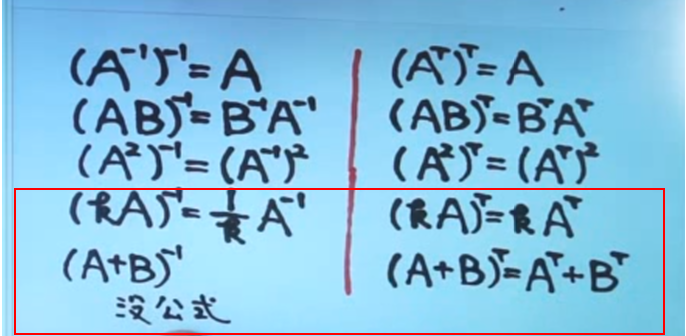 (A⁻¹)⁻¹=A
(AB)⁻¹=B⁻¹A⁻¹
(A²)⁻¹=(A⁻¹)²
(kA)⁻¹=1/k A⁻¹
(A+B)⁻¹
没公式
(Aᵀ)ᵀ=A
(AB)ᵀ=BᵀAᵀ
(A²)ᵀ=(Aᵀ)²
(kA)ᵀ=kAᵀ
(A+B)ᵀ=Aᵀ+Bᵀ